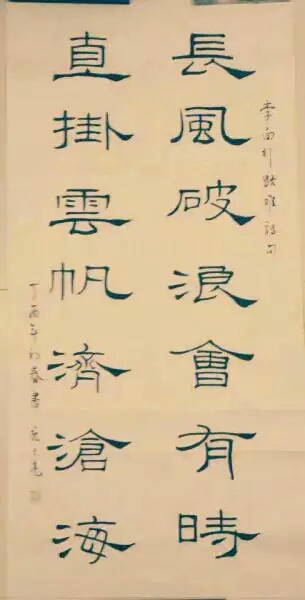 長風破浪會有時
李白行路難詩句
直掛雲帆濟滄海
丁酉年初春書